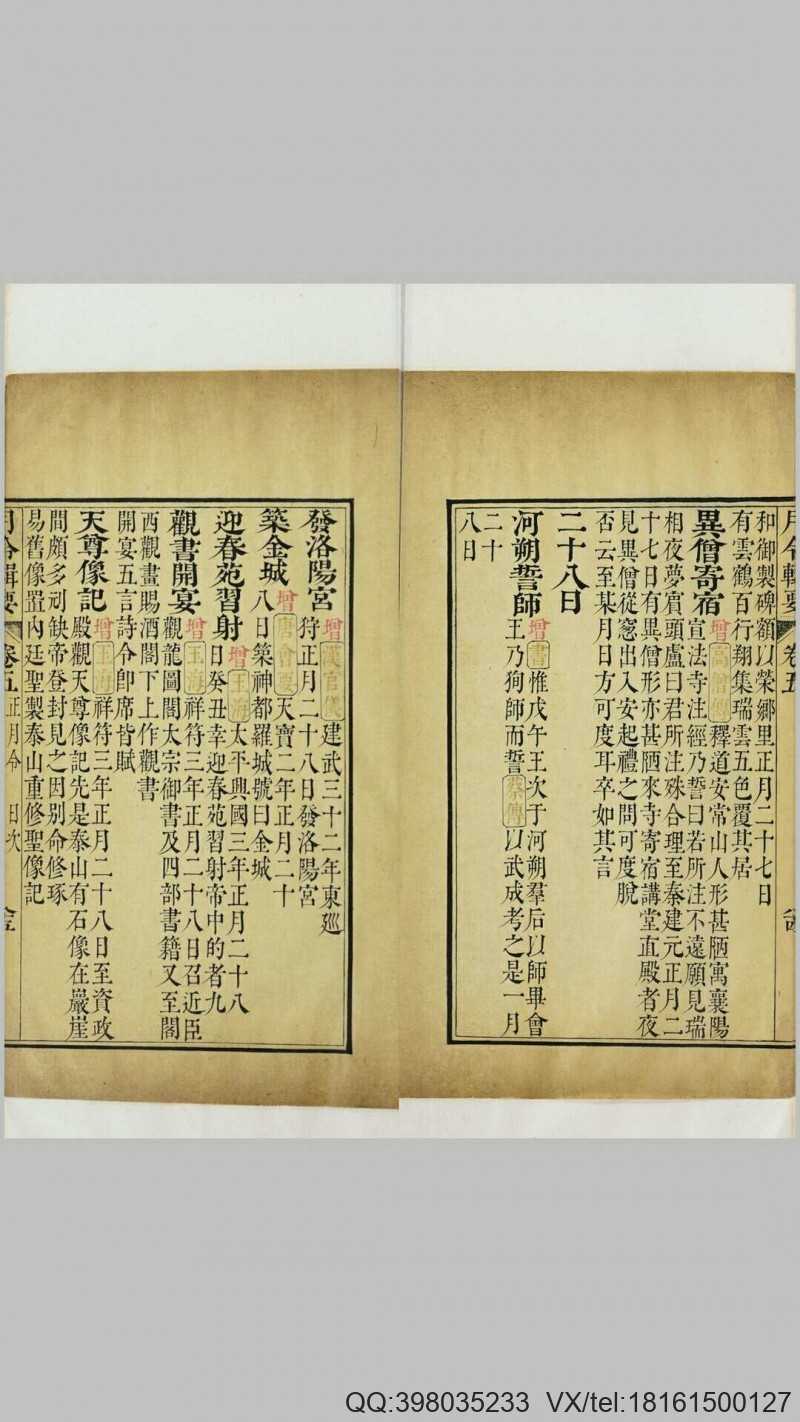 月令輯要 卷五
和御製碑額以榮鄉里正月二十七日
有雲鶴百行翔集瑞雲五色覆其居
異僧寄宿 增 釋道安常山人形甚陋寓襄陽
宣法寺注經乃誓曰若所注不遠願見瑞
相夜夢賔頭盧曰君所注殊合理至秦建元正月二
十七日有異僧形亦甚陋來寺寄宿講堂直殿者夜
見異僧從窓出入安起禮之問可度脫
否云至某月日方可度耳卒如其言
二十八日
河朔誓師 增 書 惟戊午王次于河朔羣后以師畢會
王乃狥師而誓 蔡傳 以武成考之是一月
二十
八日
發洛陽宮 增 建武三十二年東廵
狩正月二十八日發洛陽宮
築金城 增 天寶二年正月二十
八日築神都羅城號曰金城
迎春苑習射 增 玉海 太平興國三年正月二十八
日癸丑幸迎春苑習射帝中的者九
觀書開宴 增 玉海 祥符三年正月二十八日召近臣
觀龍圖閣太宗御書及四部書籍又至閣
西觀畫賜酒閣下上作觀書
開宴五言詩令卽席皆賦
天尊像記 增 玉海 祥符三年正月二十八日至資政
殿觀天尊像記先是泰山有石像在巖崖
間頗多刓缺帝登封見之因别命修琢
易舊像置內廷聖製泰山重修聖像記
月令輯要 卷五 正月令 日次
QQ:398035233 VX/tel:18161500127